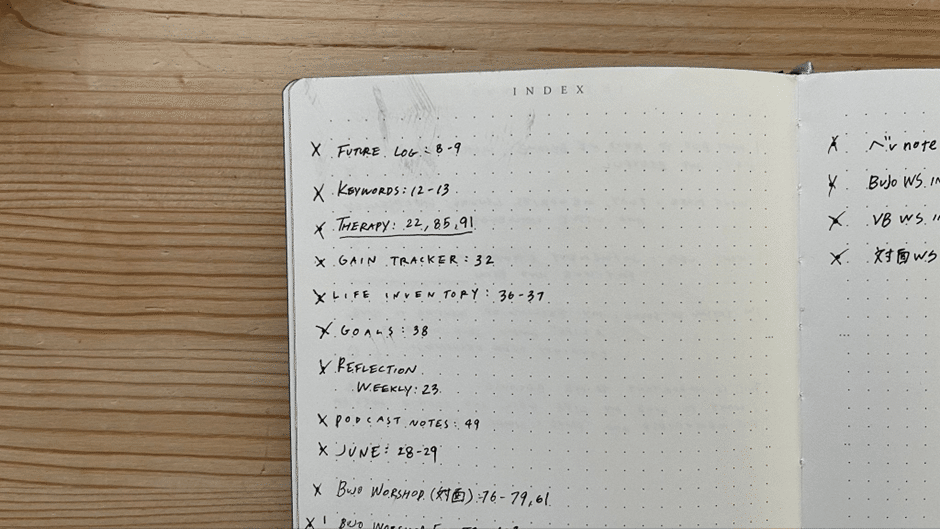 INDEX
X FUTURE LOG: 8-9
X KEYWORDS: 12-13
X THERAPY: 22, 85, 91
X GAIN TRACKER: 32
X LIFE INVENTORY: 36-37
X GOALS: 38
X REFLECTION
WEEKLY: 23
X PODCAST NOTES: 49
X JUNE: 28-29
X BUJO WORSHOP (対面): 76-79, 61
X BUJO
X note
X BUJO WS
X VB WS
X 対面 WS